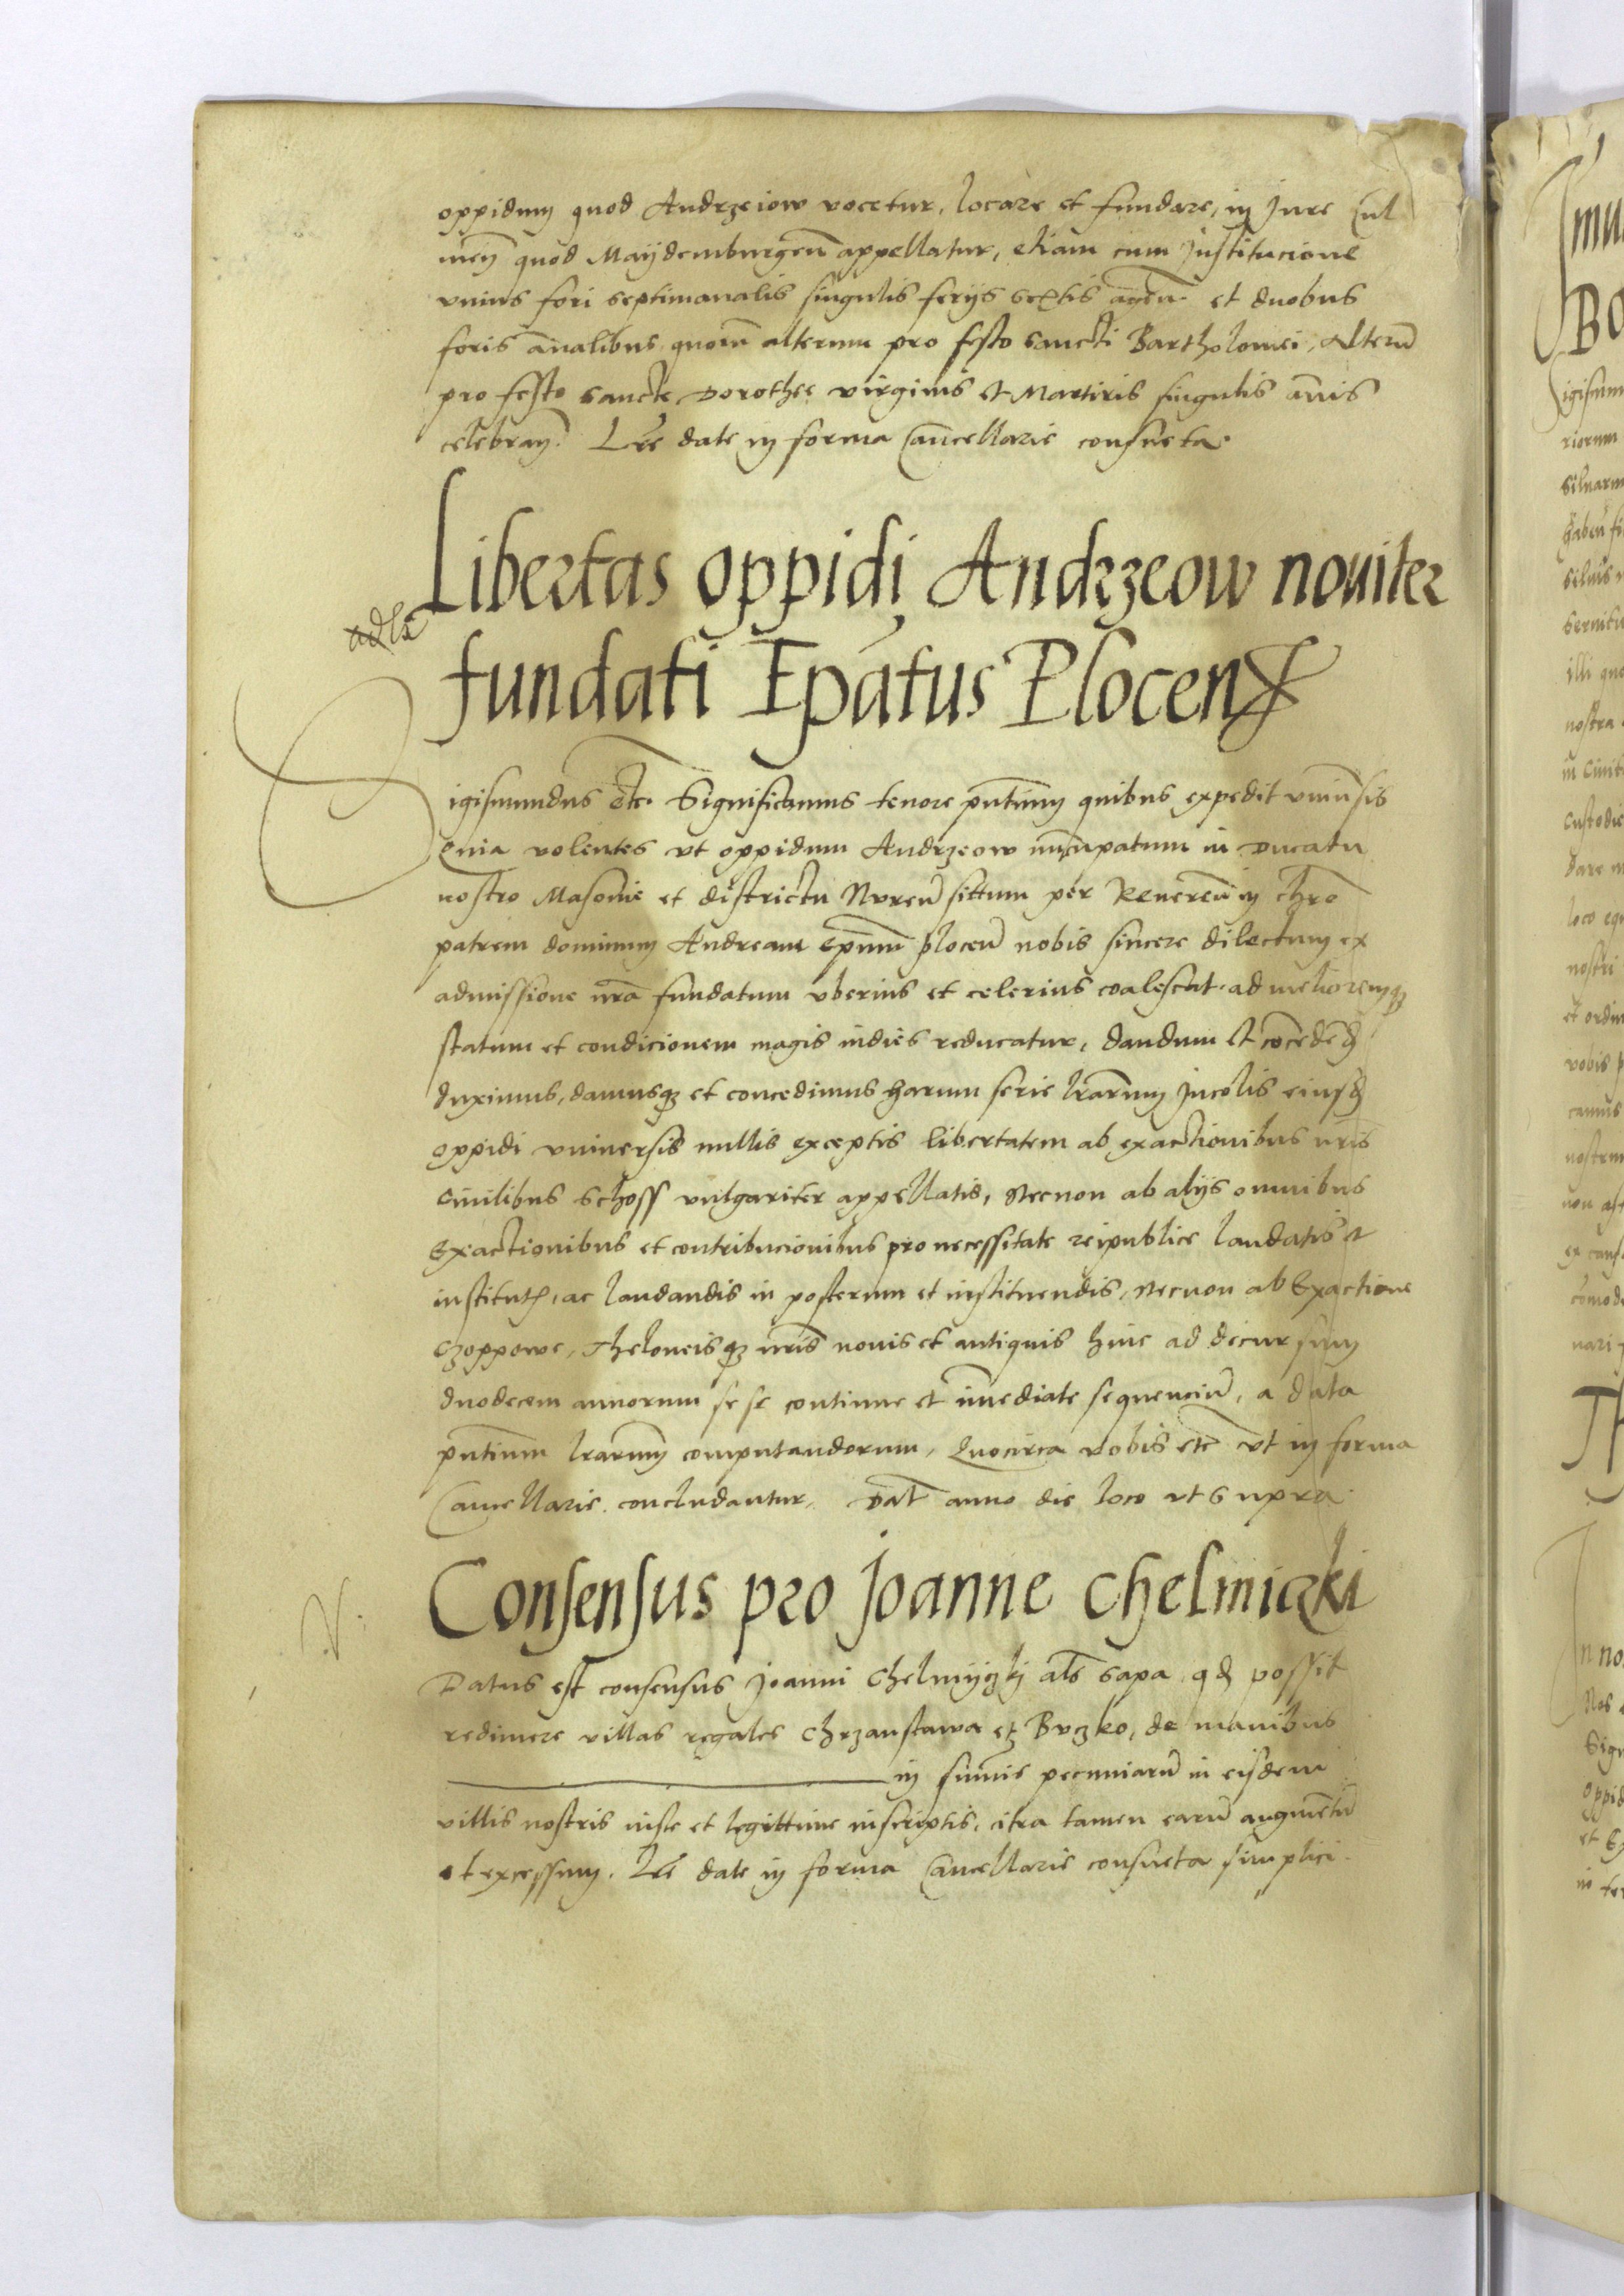 oppidum quod Andrzeiow vocetur, locare et fundare, in Jure Cul
men̄ quod Maydemburgen̄ appellatur, etiam cum Institucione
vnius fori septimanalis singulis ferijs sextis agen̄. et duobus
foris an̄alibus quor̄u alterum pro festo sancti Bartholomei, Alter̄u
pro festo sancte Dorothee virginis et Martiris singulis an̄is
celebran̄. Lr̄e date in forma Cancellarie consueta.
Libertas oppidi Andrzeow nouiter
fundati Ep̄atus Plocen̄
Sigismundus etc. Significamus tenore pn̄tium quibus expedit vniu̅sis
Quia volentes vt oppidum Andrzeow nu̅cupatum in Ducatu
nostro Masouie et districtu Nuren̄ sittum per Reueren̄ in chr̄o
patrem dominum Andream Ep̄um plocen̄ nobis sincere dilectum ex
admissione nr̄a fundatum vberius et celerius coalescat. ad melioremq3
statum et condicionem magis indies reducatur, dandum et co̅cede̅d
duximus, damusq3 et concedimus harum serie lr̄arum Incolis eiusd
oppidi vniuersis nullis exceptis libertatem ab exactionibus nr̄is
Ciuilibus schoss vulgariter appellatis, Necnon ab alijs omnibus
Exactionibus et contribucionibus pro necessitate reipublice laudatis et
institut), ac laudandis in posterum et instituendis, Necnon ab Exactione
Czoppowe, Theloneisq3 nr̄is nouis et antiquis hinc ad decursum
duodecem annorum se se continue et im̄ediate sequenciu̅, a data
pn̄tium lr̄arum computandorum, Quocirca vobis etc̄ vt in forma
Cancellarie concludantur. Dat̄ anno die loco vt supra.
Consensus pro Joanne Chelmiczki
Datus est consensus Joanni Chelmyczkj al̄s Sapa qd possit
redimere villas regales Chrzanstawa et Buczko, de manibus
in sum̄is pecuniaru̅ in eisdem
villis nostris iuste et legittime inscriptis, citra tamen earu̅ augme̅tu̅
et excessum. Lr̄e date in forma Cancellarie consueta simplici.